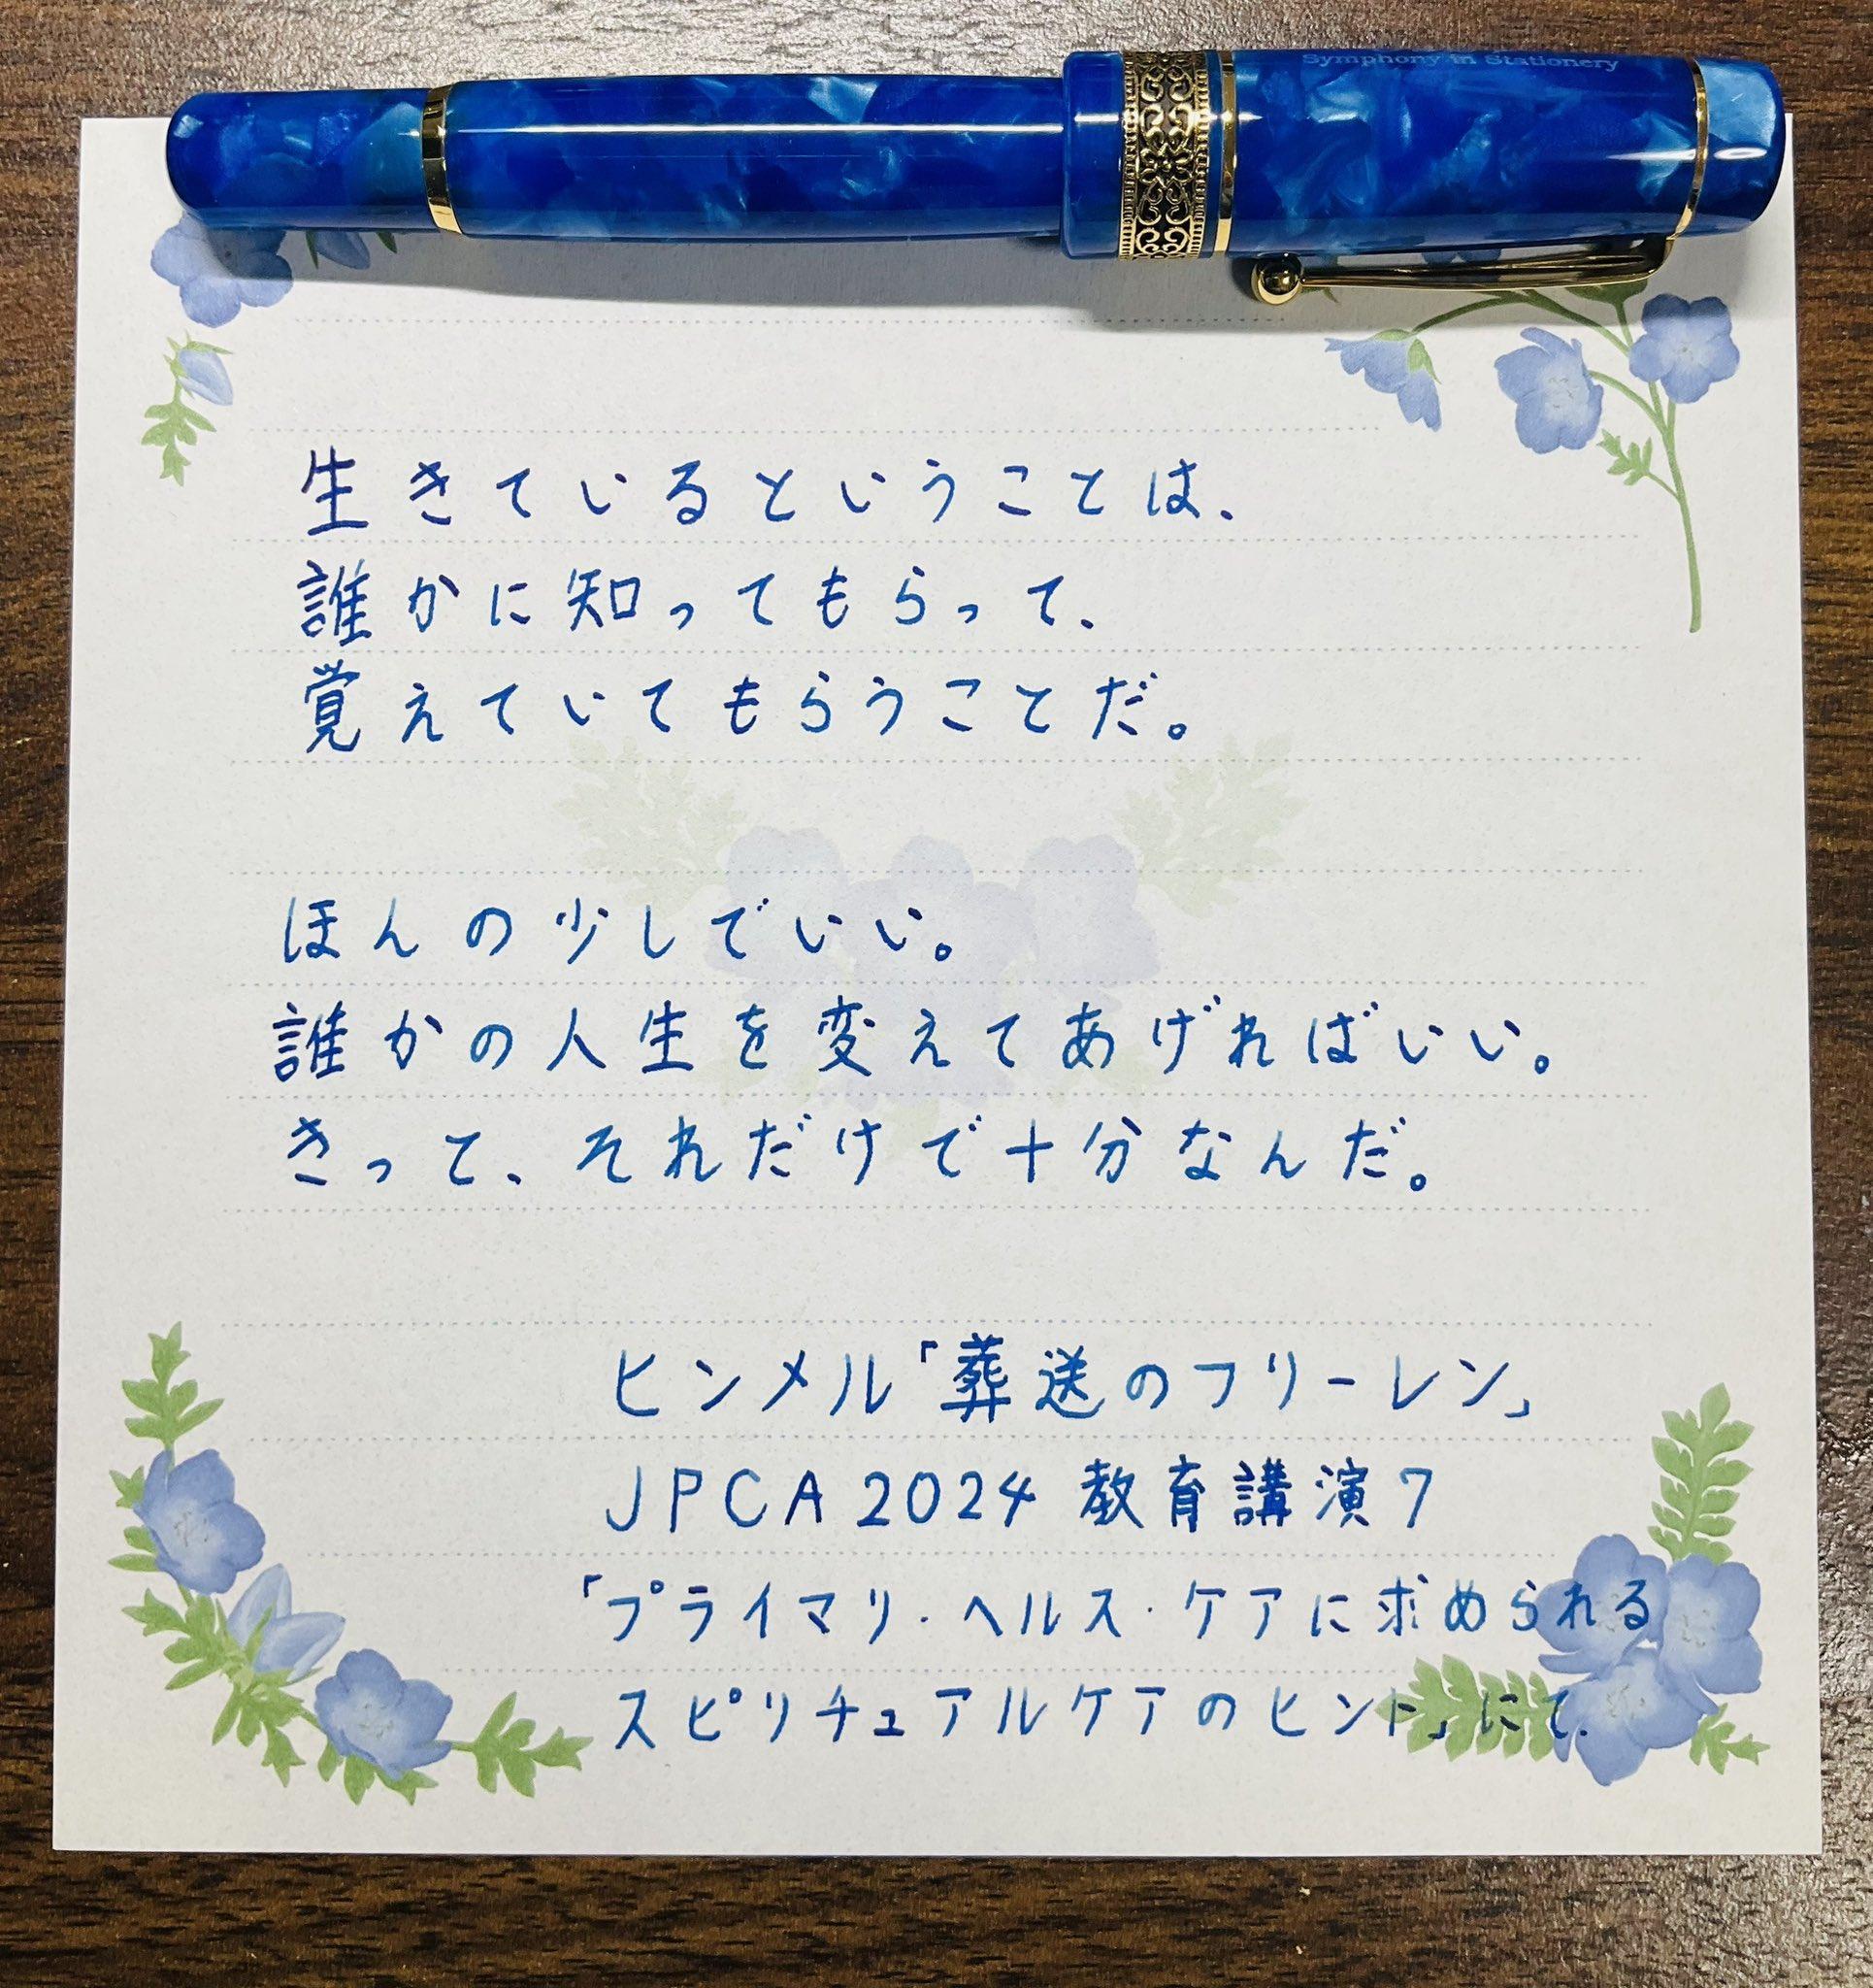 Symphony in Stationery
生きているということは、
誰かに知ってもらって、
覚えていてもらうことだ。
ほんの少しでいい。
誰かの人生を変えてあげればいい。
きって、それだけで十分なんだ。
ヒンメル「葬送のフリーレン」
JPCA2024 教育講演7
「プライマリ・ヘルス・ケアに求められる
スピリチュアルケアのヒント」にて.